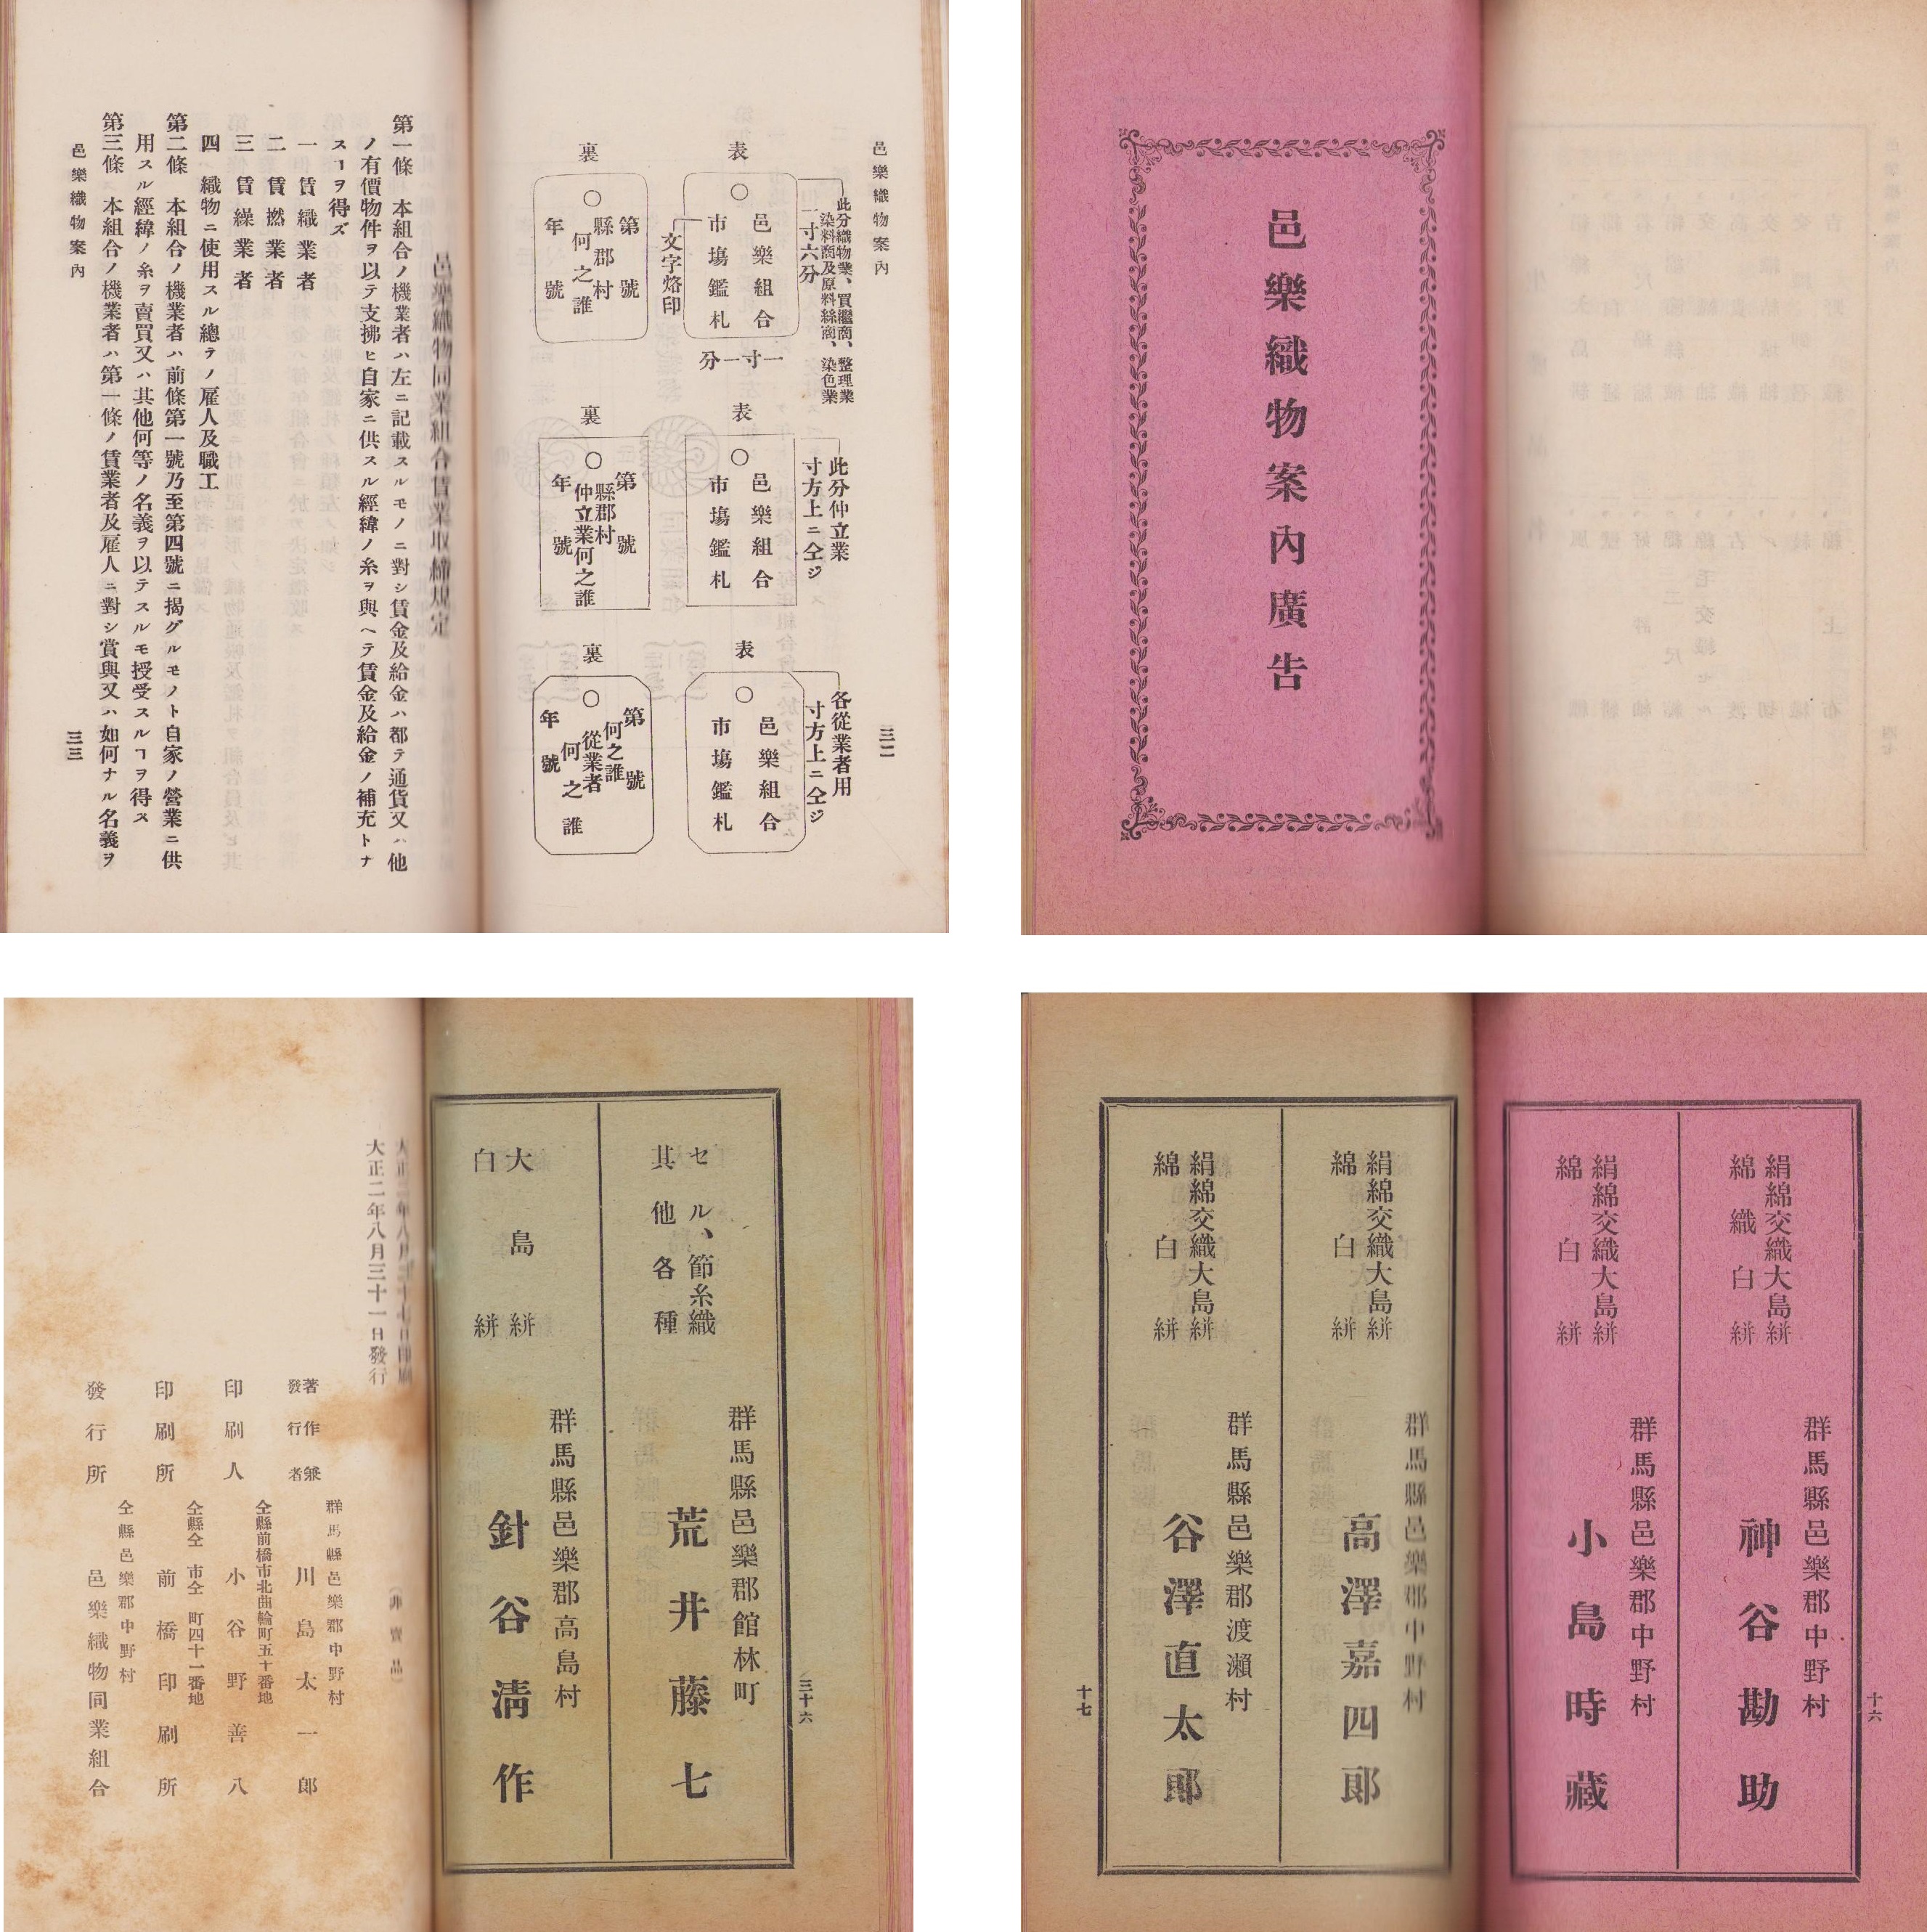 邑樂織物案內
三二
此分織物業、買繼商、整理業
染料商及原料絲商、染色業
表
一寸六分
邑樂組合
市塲鑑札
一寸一分
文字烙印
裏
第 號
縣郡村
何之誰
年 號
此分仲立業
寸方上ニ仝ジ
表
邑樂組合
市塲鑑札
裏
第 號
縣郡村
仲立業何之誰
年 號
各從業者用
寸方上ニ仝ジ
表
邑樂組合
市塲鑑札
裏
第 號
何之誰
從業者
何之誰
年 號
邑樂織物同業組合賃業取締規定
第一條 本組合ノ機業者ハ左ニ記載スルモノニ對シ賃金及給金ハ都テ通貨又ハ他
ノ有價物件ヲ以テ支拂ヒ自家ニ供スル經緯ノ糸ヲ與ヘテ賃金及給金ノ補充トナ
スヿヲ得ズ
一 賃織業者
二 賃撚業者
三 賃繰業者
四 織物ニ使用スル總テノ雇人及職工
第二條 本組合ノ機業者ハ前條第一號乃至第四號ニ揭グルモノト自家ノ營業ニ供
用スル經緯ノ糸ヲ賣買又ハ其他何等ノ名義ヲ以テスルモ授受スルヿヲ得ス
第三條 本組合ノ機業者ハ第一條ノ賃業者及雇人ニ對シ賞與又ハ如何ナル名義ヲ
邑樂織物案內
三三
邑樂織物案內廣告
セル、節糸織
其他各種
群馬縣邑樂郡館林町
荒井藤七
三十六
大島絣
白絣
群馬縣邑樂郡高島村
針谷淸作
大正二年八月三十一日發行
著作兼
發行者
群馬縣邑樂郡中野村
川島太一郎
印刷人
仝縣前橋市北曲輪町五十番地
小谷野善八
印刷所
仝縣仝市仝町四十一番地
前橋印刷所
發行所
仝縣邑樂郡中野村
邑樂織物同業組合
十六
絹綿交織大島絣
綿織白絣
群馬縣邑樂郡中野村
神谷勘助
絹綿交織大島絣
綿白絣
群馬縣邑樂郡中野村
小島時藏
絹綿交織大島絣
綿白絣
群馬縣邑樂郡中野村
高澤嘉四郎
絹綿交織大島絣
綿白絣
群馬縣邑樂郡渡瀨村
谷澤直太郎
十七